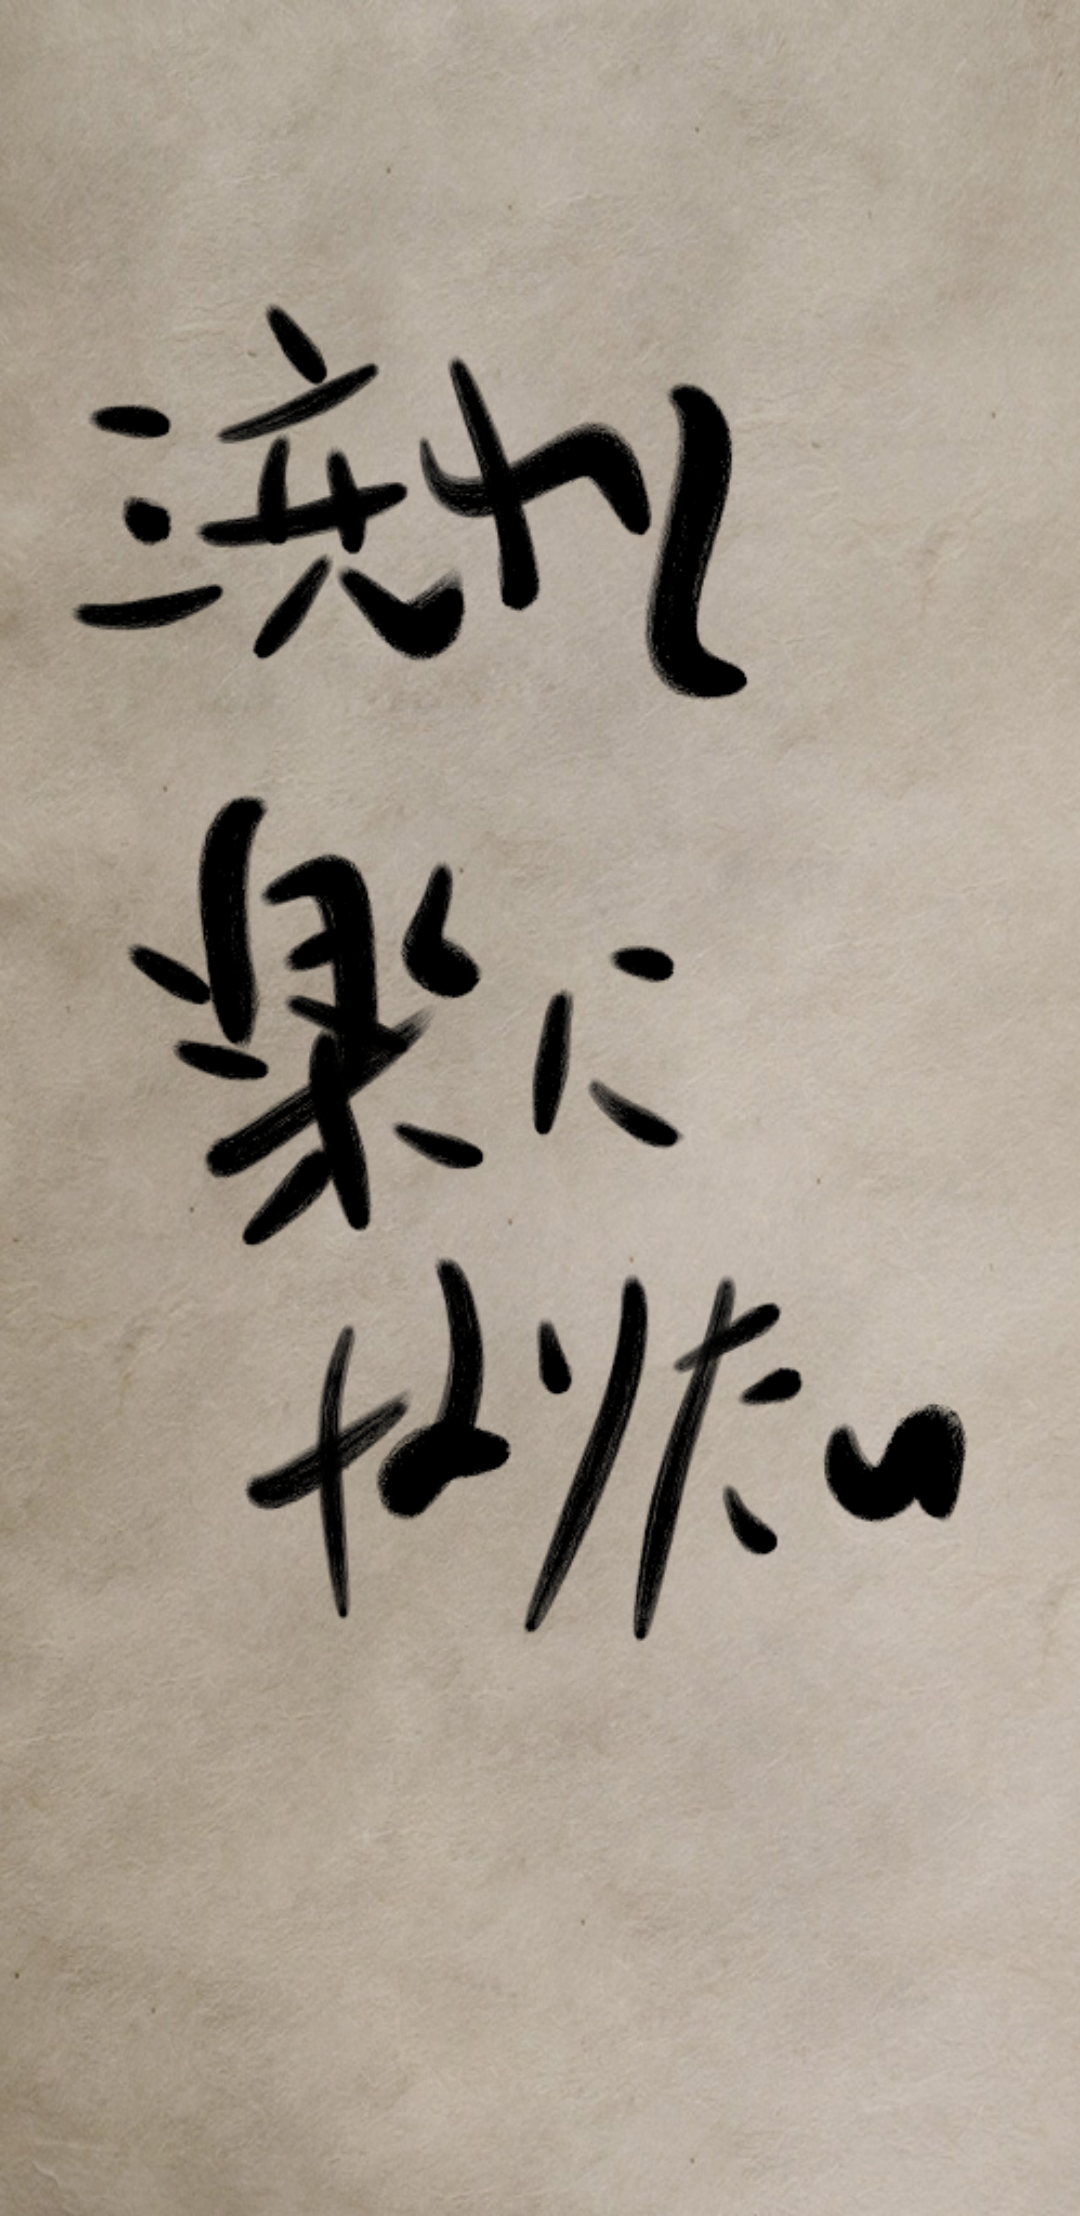 流れ
楽に
なりたい